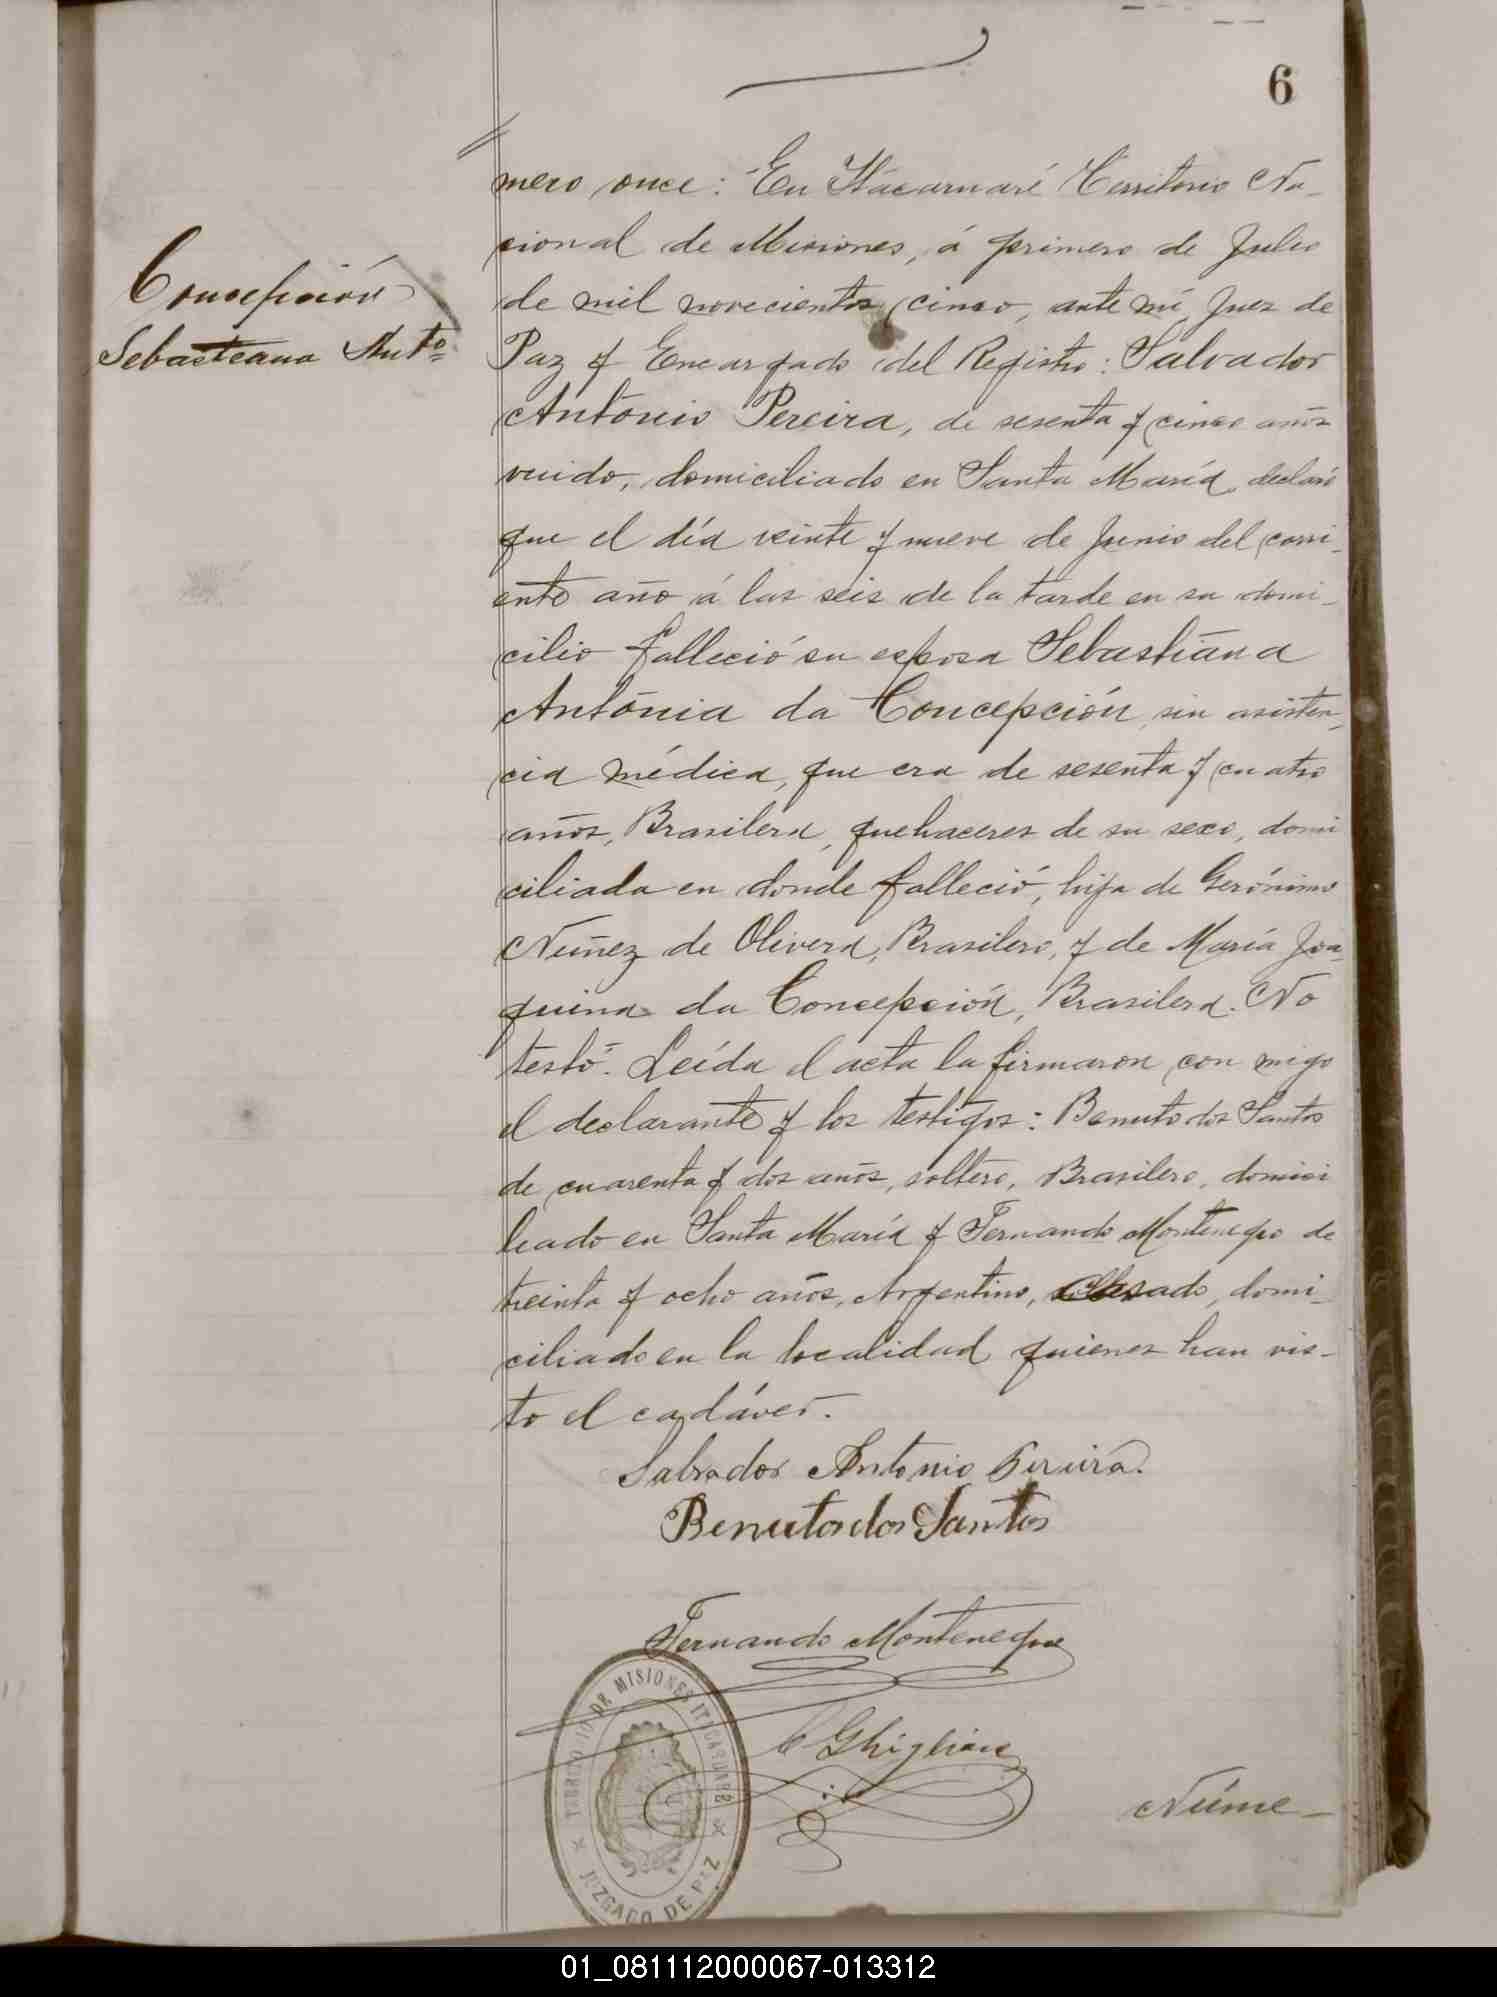 6
mero once: En Itacaruaré Territorio Na-
cional de Misiones, á primero de Julio
de mil novecientos cinco, ante mi Juez de
Paz y Encargado del Registro: Salvador
Antonio Pereira, de sesenta y cinco años
viudo, domiciliado en Santa María, declaró
que el día veinte y nueve de Junio del corri-
ente año á las seis de la tarde en su domi-
cilio falleció su esposa Sebastiana
Antonia da Concepción, sin asisten-
cia médica, que era de sesenta y cuatro
años, Brasilera, quehaceres de su sexo, domi
ciliada en donde falleció, hija de Gerónimo
Nuñez de Olivera, Brasilero, y de María Joa-
quina da Concepción, Brasilera. No
testó. Leída el acta la firmaron con migo
el declarante y los testigos: Benuto dos Santos
de cuarenta y dos años, soltero, Brasilero, domici
liado en Santa María y Fernando Montenegro de
treinta y ocho años, Argentino, casado, domi-
ciliado en la localidad quienes han vis-
to el cadáver.
Concepción
Sebasteana Antª
Salvador Antonio Pereira.
Benuto dos Santos
Fernando Montenegro
C Ghiglione
TERRITORIO DE MISIONES ITACARUARE
JUZGADO DE PAZ
Núme-
01_081112000067-013312